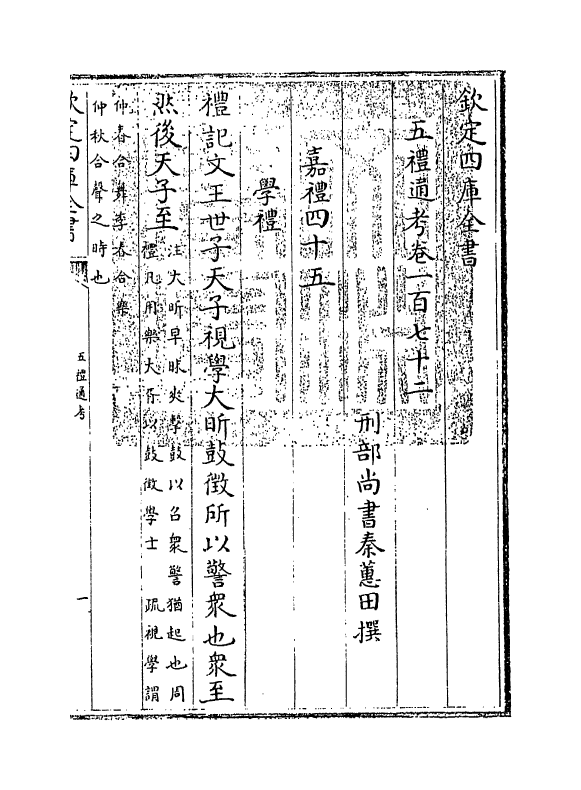 欽定四庫全書
五禮通考卷一百七十二
刑部尚書秦蕙田撰
嘉禮四十五
學禮
禮記文王世子天子視學大昕鼓徵所以警衆也衆至
然後天子至
注大昕早昧爽擊鼓以召衆警猶起也周
禮凡用樂大胥以鼓徵學士　疏視學謂
仲春合舞季春合樂
仲秋合聲之時也
欽定四庫全書
五禮通考
一